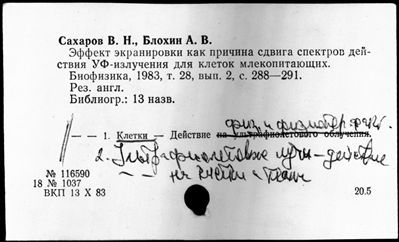 Сахаров В. Н., Блохин А. В.
Эффект экранировки как причина сдвига спектров дей-
ствия УФ-излучения для клеток млекопитающих.
Биофизика, 1983, т. 28, вып. 2, с. 288—291.
Рез. англ.
Библиогр.: 13 назв.
физ. и
— — 1. Клетки — Действие ультрафиолетового облучения.
2. Ультрафиолетовые лучи - действие
— — на клетки и ткани
№ 116590
18 № 1037
ВКП 13 X 83
20.5